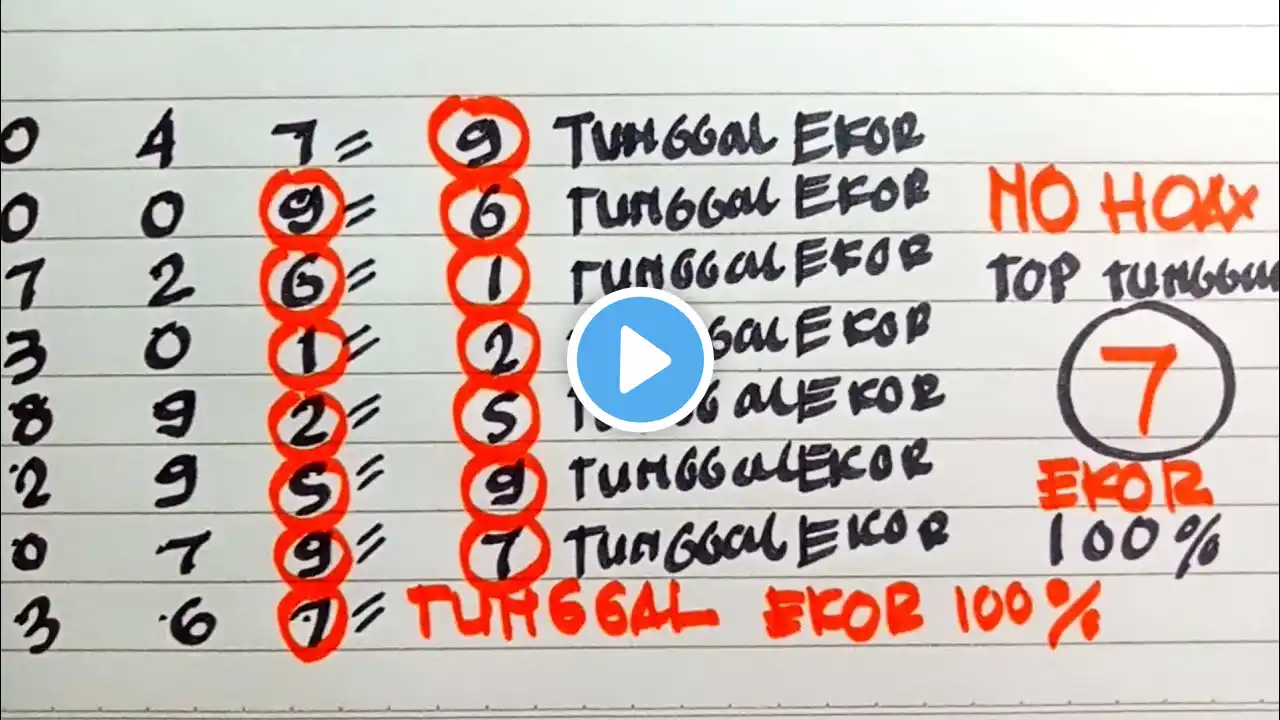 0 4 7 = 9 TUNGGAL EKOR
0 0 9 = 6 TUNGGAL EKOR NO HOAX
7 2 6 = 1 TUNGGAL EKOR TOP
3 0 1 = 2 EKOR 7
8 9 2 = 5 EKOR
2 9 5 = 9 TUNGGAL EKOR EKOR
0 7 9 = 7 TUNGGAL EKOR 100%
3 6 7 = TUNGGAL EKOR 100%